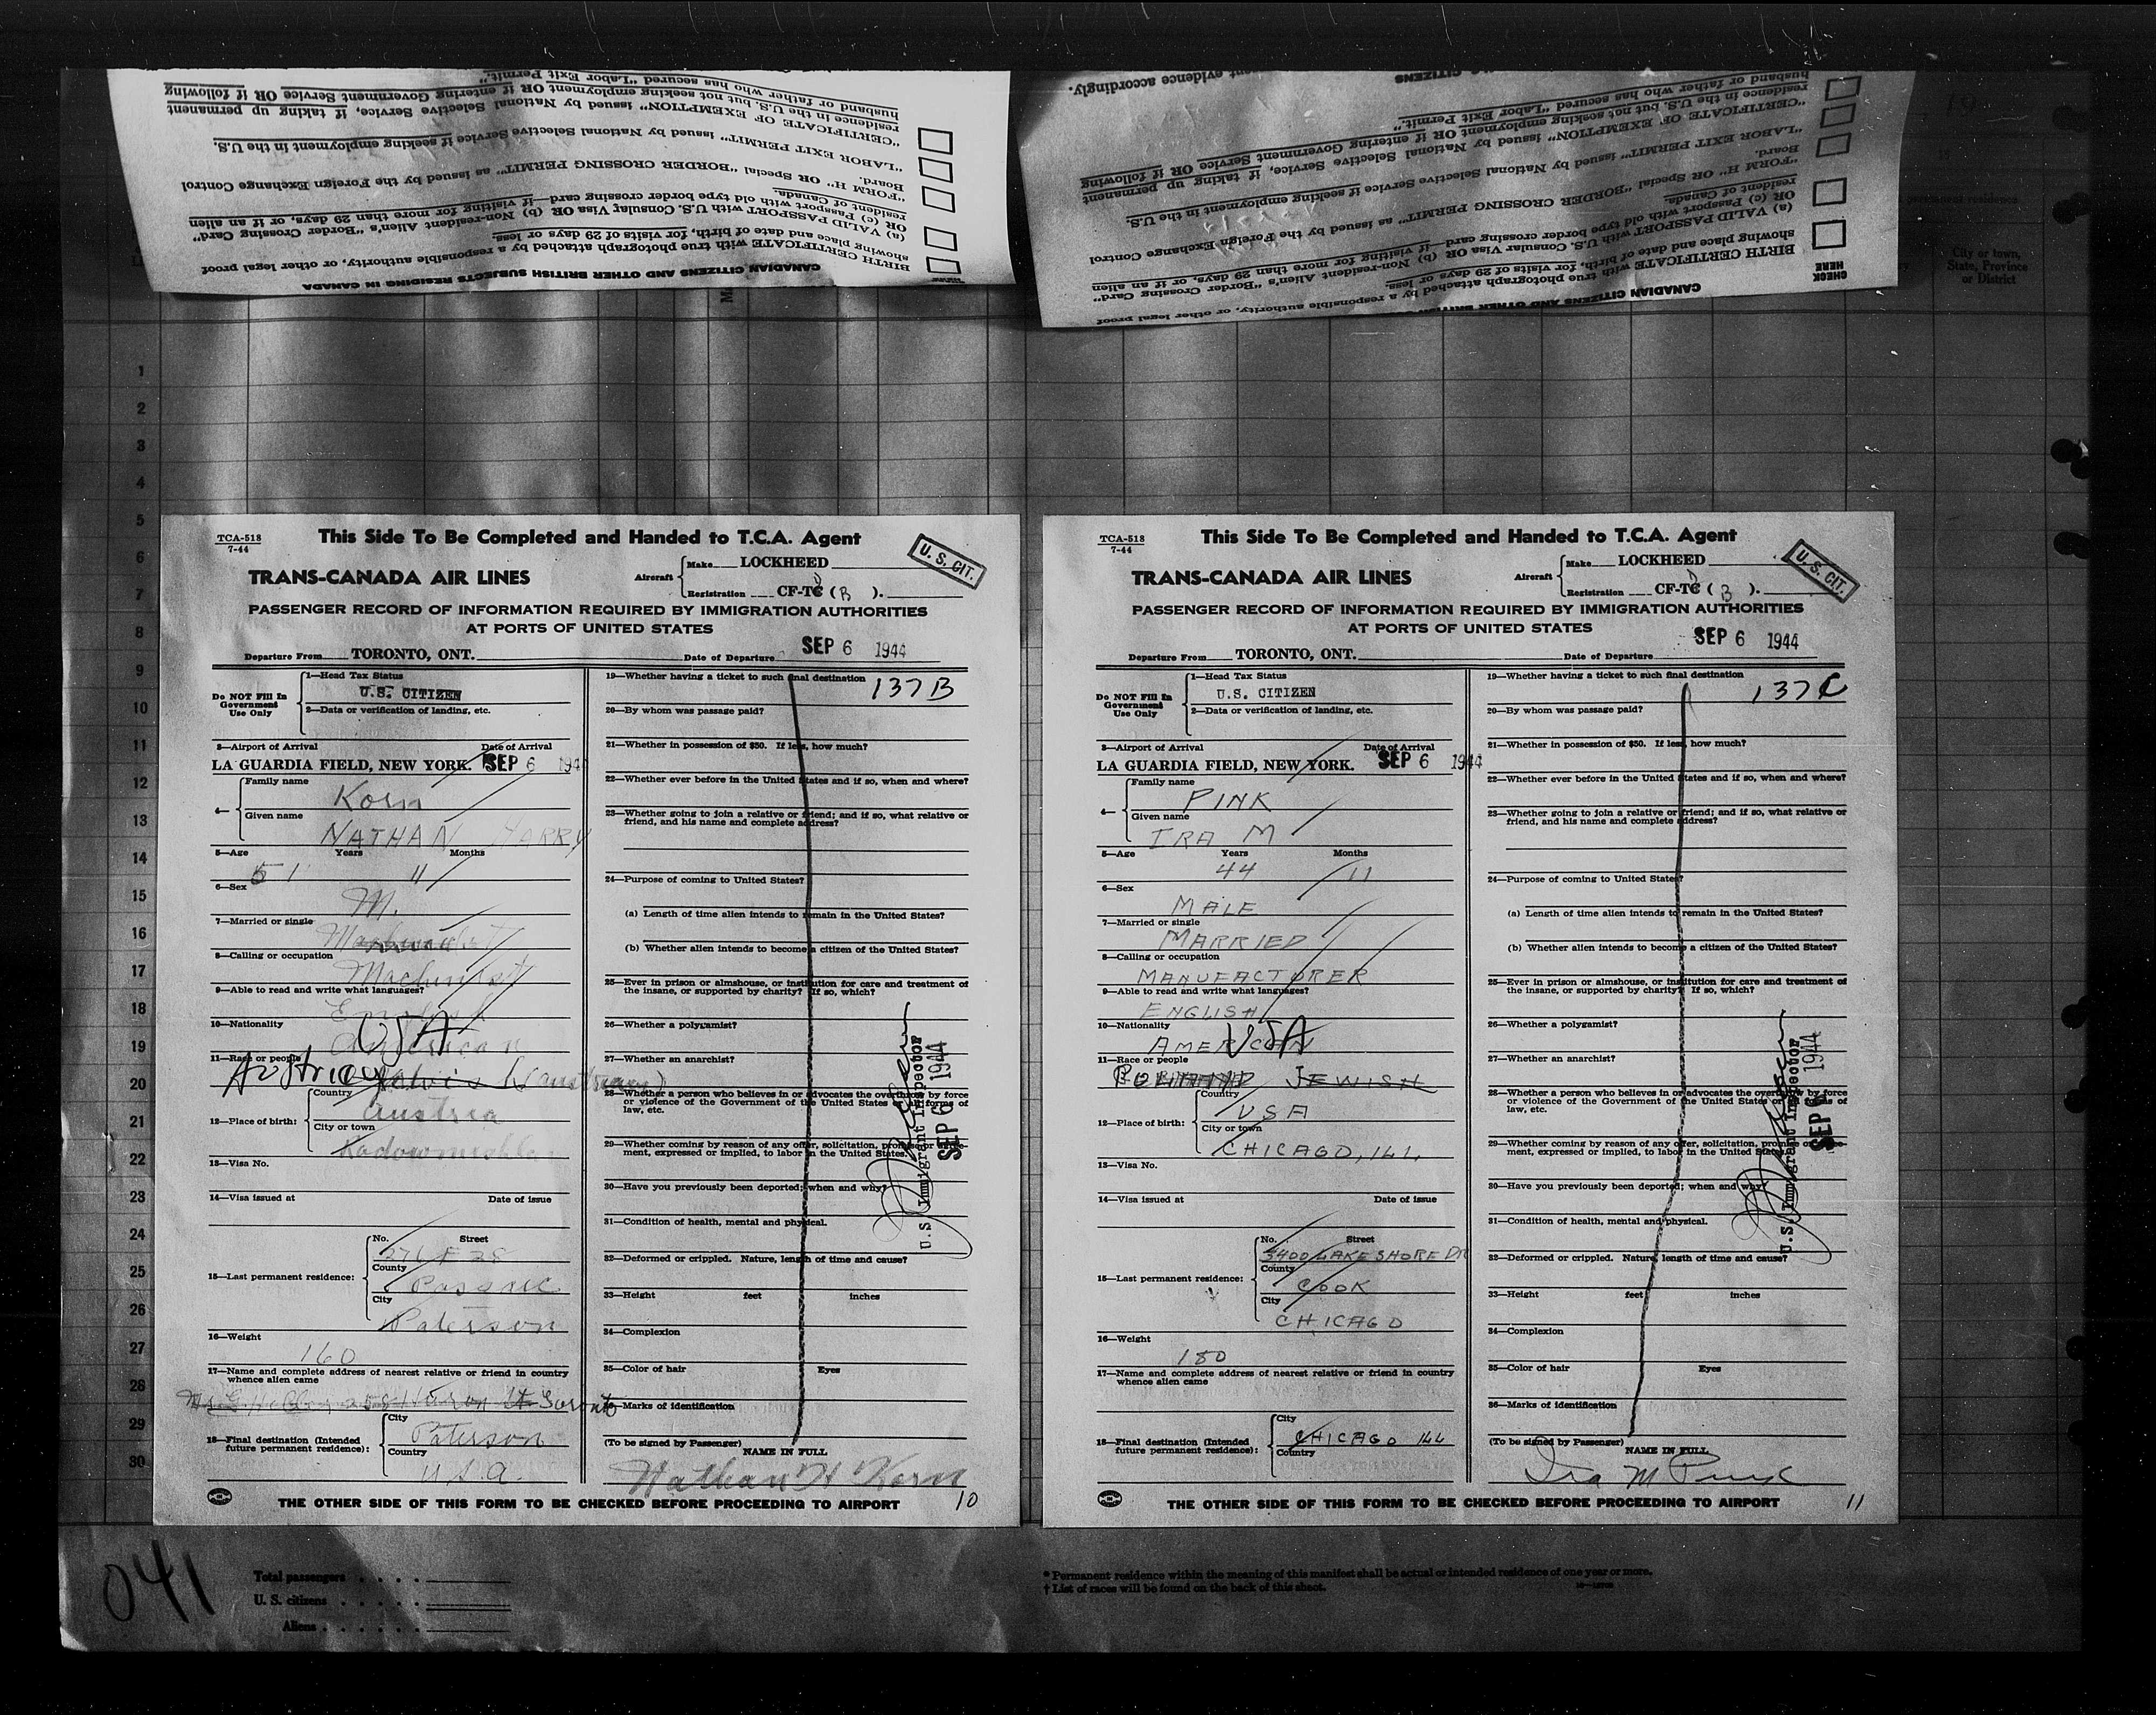 husband or father who has secured "Labor Exit Permit."
residence in the U.S. but not seeking employment OR if entering Government Service OR if following
"CERTIFICATE OF EXEMPTION" issued by National Selective Service, if taking up permanent
"LABOR EXIT PERMIT" issued by National Selective Service if seeking employment in the U.S.
Board.
"FORM H" OR Special "BORDER CROSSING PERMIT" as issued by the Foreign Exchange Control
resident of Canada.
OR (c) Passport with old type border crossing card—if visiting for more than 29 days, or if an alien
(a) VALID PASSPORT with U.S. Consular Visa OR (b) Non-resident Alien's "Border Crossing Card"
showing place and date of birth, for visits of 29 days or less.
BIRTH CERTIFICATE with true photograph attached by a responsible authority, or other legal proof
CANADIAN CITIZENS AND OTHER BRITISH SUBJECTS RESIDING IN CANADA
evidence accordingly.
CITIZENS
husband or father who has secured "Labor Exit Permit."
residence in the U.S. but not seeking employment OR if entering Government Service OR if following
"CERTIFICATE OF EXEMPTION" issued by National Selective Service, if taking up permanent
"LABOR EXIT PERMIT" issued by National Selective Service if seeking employment in the U.S.
Board.
"FORM H" OR Special "BORDER CROSSING PERMIT" as issued by the Foreign Exchange Control
resident of Canada.
OR (c) Passport with old type border crossing card—if visiting for more than 29 days, or if an alien
(a) VALID PASSPORT with U.S. Consular Visa OR (b) Non-resident Alien's "Border Crossing Card"
showing place and date of birth, for visits of 29 days or less.
BIRTH CERTIFICATE with true photograph attached by a responsible authority, or other legal proof
CANADIAN CITIZENS AND OTHER BRITISH
CHECK
HERE
permanent residence
City or town,
State, Province
or District
1
2
3
4
5
6
7
8
9
10
11
12
13
14
15
16
17
18
19
20
21
22
23
24
25
26
27
28
29
30
TCA-518
7-44
This Side To Be Completed and Handed to T.C.A. Agent
U. S. CIT.
TRANS-CANADA AIR LINES
Aircraft
Make LOCKHEED
Registration CF-TC ( B ).
PASSENGER RECORD OF INFORMATION REQUIRED BY IMMIGRATION AUTHORITIES
AT PORTS OF UNITED STATES
Departure From TORONTO, ONT. Date of Departure SEP 6 1944
Do NOT Fill In
Government
Use Only
1—Head Tax Status
U.S. CITIZEN
2—Data or verification of landing, etc.
3—Airport of Arrival Date of Arrival
LA GUARDIA FIELD, NEW YORK. SEP 6 194
4— Family name
Korn
Given name
NATHAN HARRY
5—Age Years Months
51 11
6—Sex
M.
7—Married or single
8—Calling or occupation
Machinist
9—Able to read and write what languages?
English
10—Nationality
USA
American
11—Race or people
Austrian
12—Place of birth: Country
Austria
City or town
13—Visa No.
14—Visa issued at Date of issue
15—Last permanent residence:
No. Street
271 E 28
County
Passaic
City
Paterson
16—Weight
160
17—Name and complete address of nearest relative or friend in country
whence alien came
Huron St Toronto
18—Final destination (Intended
future permanent residence):
City
Paterson
Country
U.S.A.
19—Whether having a ticket to such final destination
137 B
20—By whom was passage paid?
21—Whether in possession of $50. If less, how much?
22—Whether ever before in the United States and if so, when and where?
23—Whether going to join a relative or friend; and if so, what relative or
friend, and his name and complete address?
24—Purpose of coming to United States?
(a) Length of time alien intends to remain in the United States?
(b) Whether alien intends to become a citizen of the United States?
25—Ever in prison or almshouse, or institution for care and treatment of
the insane, or supported by charity? If so, which?
26—Whether a polygamist?
27—Whether an anarchist?
28—Whether a person who believes in or advocates the overthrow by force
or violence of the Government of the United States or all forms of
law, etc.
29—Whether coming by reason of any offer, solicitation, promise or agreement,
expressed or implied, to labor in the United States.
30—Have you previously been deported; when and why?
31—Condition of health, mental and physical.
32—Deformed or crippled. Nature, length of time and cause?
33—Height feet inches
34—Complexion
35—Color of hair Eyes
36—Marks of identification
(To be signed by Passenger)
NAME IN FULL
Nathan H Korn
U.S. Immigrant Inspector
SEP 6 1944
THE OTHER SIDE OF THIS FORM TO BE CHECKED BEFORE PROCEEDING TO AIRPORT
10
TCA-518
7-44
This Side To Be Completed and Handed to T.C.A. Agent
U. S. CIT.
TRANS-CANADA AIR LINES
Aircraft
Make LOCKHEED
Registration CF-TC ( B ).
PASSENGER RECORD OF INFORMATION REQUIRED BY IMMIGRATION AUTHORITIES
AT PORTS OF UNITED STATES
Departure From TORONTO, ONT. Date of Departure SEP 6 1944
Do NOT Fill In
Government
Use Only
1—Head Tax Status
U.S. CITIZEN
2—Data or verification of landing, etc.
3—Airport of Arrival Date of Arrival
LA GUARDIA FIELD, NEW YORK. SEP 6 1944
4— Family name
PINK
Given name
IRA M
5—Age Years Months
44 11
6—Sex
MALE
7—Married or single
MARRIED
8—Calling or occupation
MANUFACTORER
9—Able to read and write what languages?
ENGLISH
10—Nationality
USA
AMERICAN
11—Race or people
JEWISH
12—Place of birth: Country
USA
City or town
CHICAGO, ILL
13—Visa No.
14—Visa issued at Date of issue
15—Last permanent residence:
No. Street
3400 LAKE SHORE DR
County
COOK
City
CHICAGO
16—Weight
180
17—Name and complete address of nearest relative or friend in country
whence alien came
18—Final destination (Intended
future permanent residence):
City
CHICAGO ILL
Country
19—Whether having a ticket to such final destination
137 C
20—By whom was passage paid?
21—Whether in possession of $50. If less, how much?
22—Whether ever before in the United States and if so, when and where?
23—Whether going to join a relative or friend; and if so, what relative or
friend, and his name and complete address?
24—Purpose of coming to United States?
(a) Length of time alien intends to remain in the United States?
(b) Whether alien intends to become a citizen of the United States?
25—Ever in prison or almshouse, or institution for care and treatment of
the insane, or supported by charity? If so, which?
26—Whether a polygamist?
27—Whether an anarchist?
28—Whether a person who believes in or advocates the overthrow by force
or violence of the Government of the United States or all forms of
law, etc.
29—Whether coming by reason of any offer, solicitation, promise or agreement,
expressed or implied, to labor in the United States.
30—Have you previously been deported; when and why?
31—Condition of health, mental and physical.
32—Deformed or crippled. Nature, length of time and cause?
33—Height feet inches
34—Complexion
35—Color of hair Eyes
36—Marks of identification
(To be signed by Passenger)
NAME IN FULL
Ira M Pink
U.S. Immigrant Inspector
SEP 6 1944
THE OTHER SIDE OF THIS FORM TO BE CHECKED BEFORE PROCEEDING TO AIRPORT
11
041
Total passengers
U. S. citizens
Aliens
* Permanent residence within the meaning of this manifest shall be actual or intended residence of one year or more.
† List of races will be found on the back of this sheet.